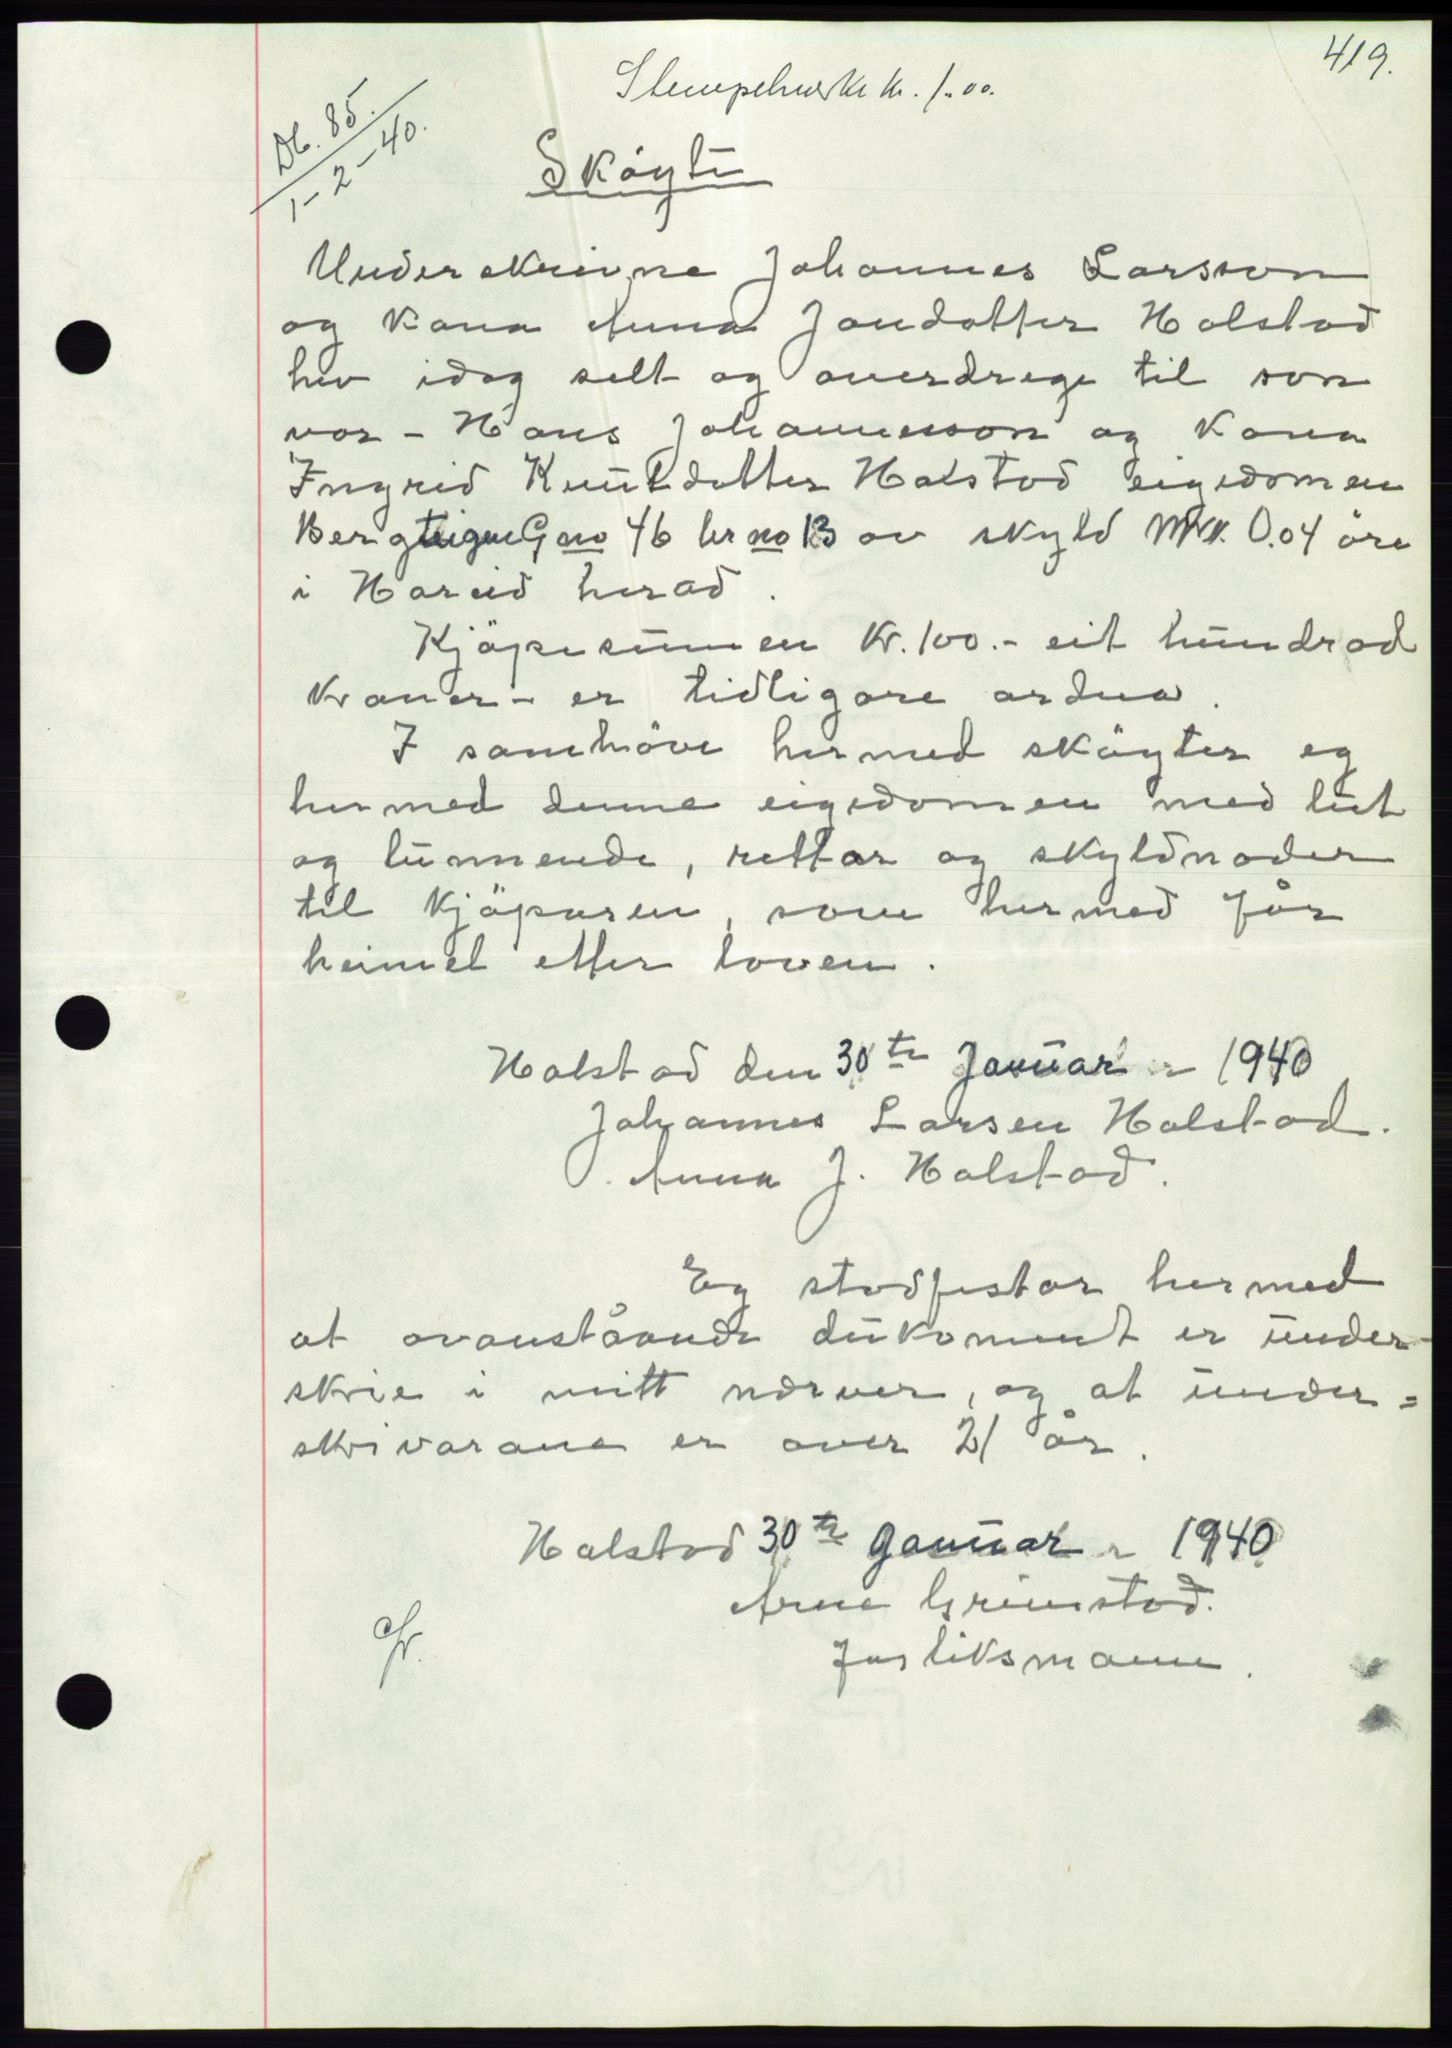 419.
Stempelmerke kr. 1.00.
Db. 85.
1-2-40.
Sköyti
Underskrivne Johannes Larsson
og kona Anna Jondotter Holstad
hev idag selt og overdrege til son
vor - Hans Johannesson og kona
Ingrid Knutdotter Holstad eigedomen
Bergteigen G no 46 br no 13 av skyld Mrk. 0.04 öre
i Hareid herad.
Kjöpesummen Kr. 100.- eit hundrad
kroner - er tidligare ordna.
I samhöve hermed sköyter eg
hermed denne eigedomen med lut
og lunnende, rettar og skyldnader
til kjöparen, som hermed får
heimel etter loven.
Holstad den 30te Januar 1940
Johannes Larsen Holstad.
Anna J. Holstad.
Eg stadfestar hermed
at ovanståande dukoment er under-
skrie i mitt nærver, og at under=
skrivarane er over 21 år.
Holstad 30te Januar 1940
Arne Grimstad.
forliksmann.